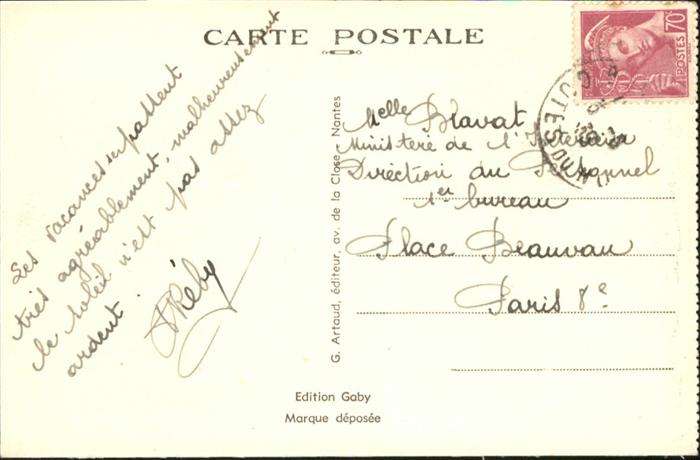 CARTE POSTALE
70c
POSTES
Les vacances se passent
très agréablement, malheureusement
le soleil n'est pas assez
ardent.
G. Artaud, éditeur, av. de la Close, Nantes
Melle
Ministère de l'Intérieur
Direction du Personnel
1er bureau
Place Beauvau
Paris 8e
Edition Gaby
Marque déposée